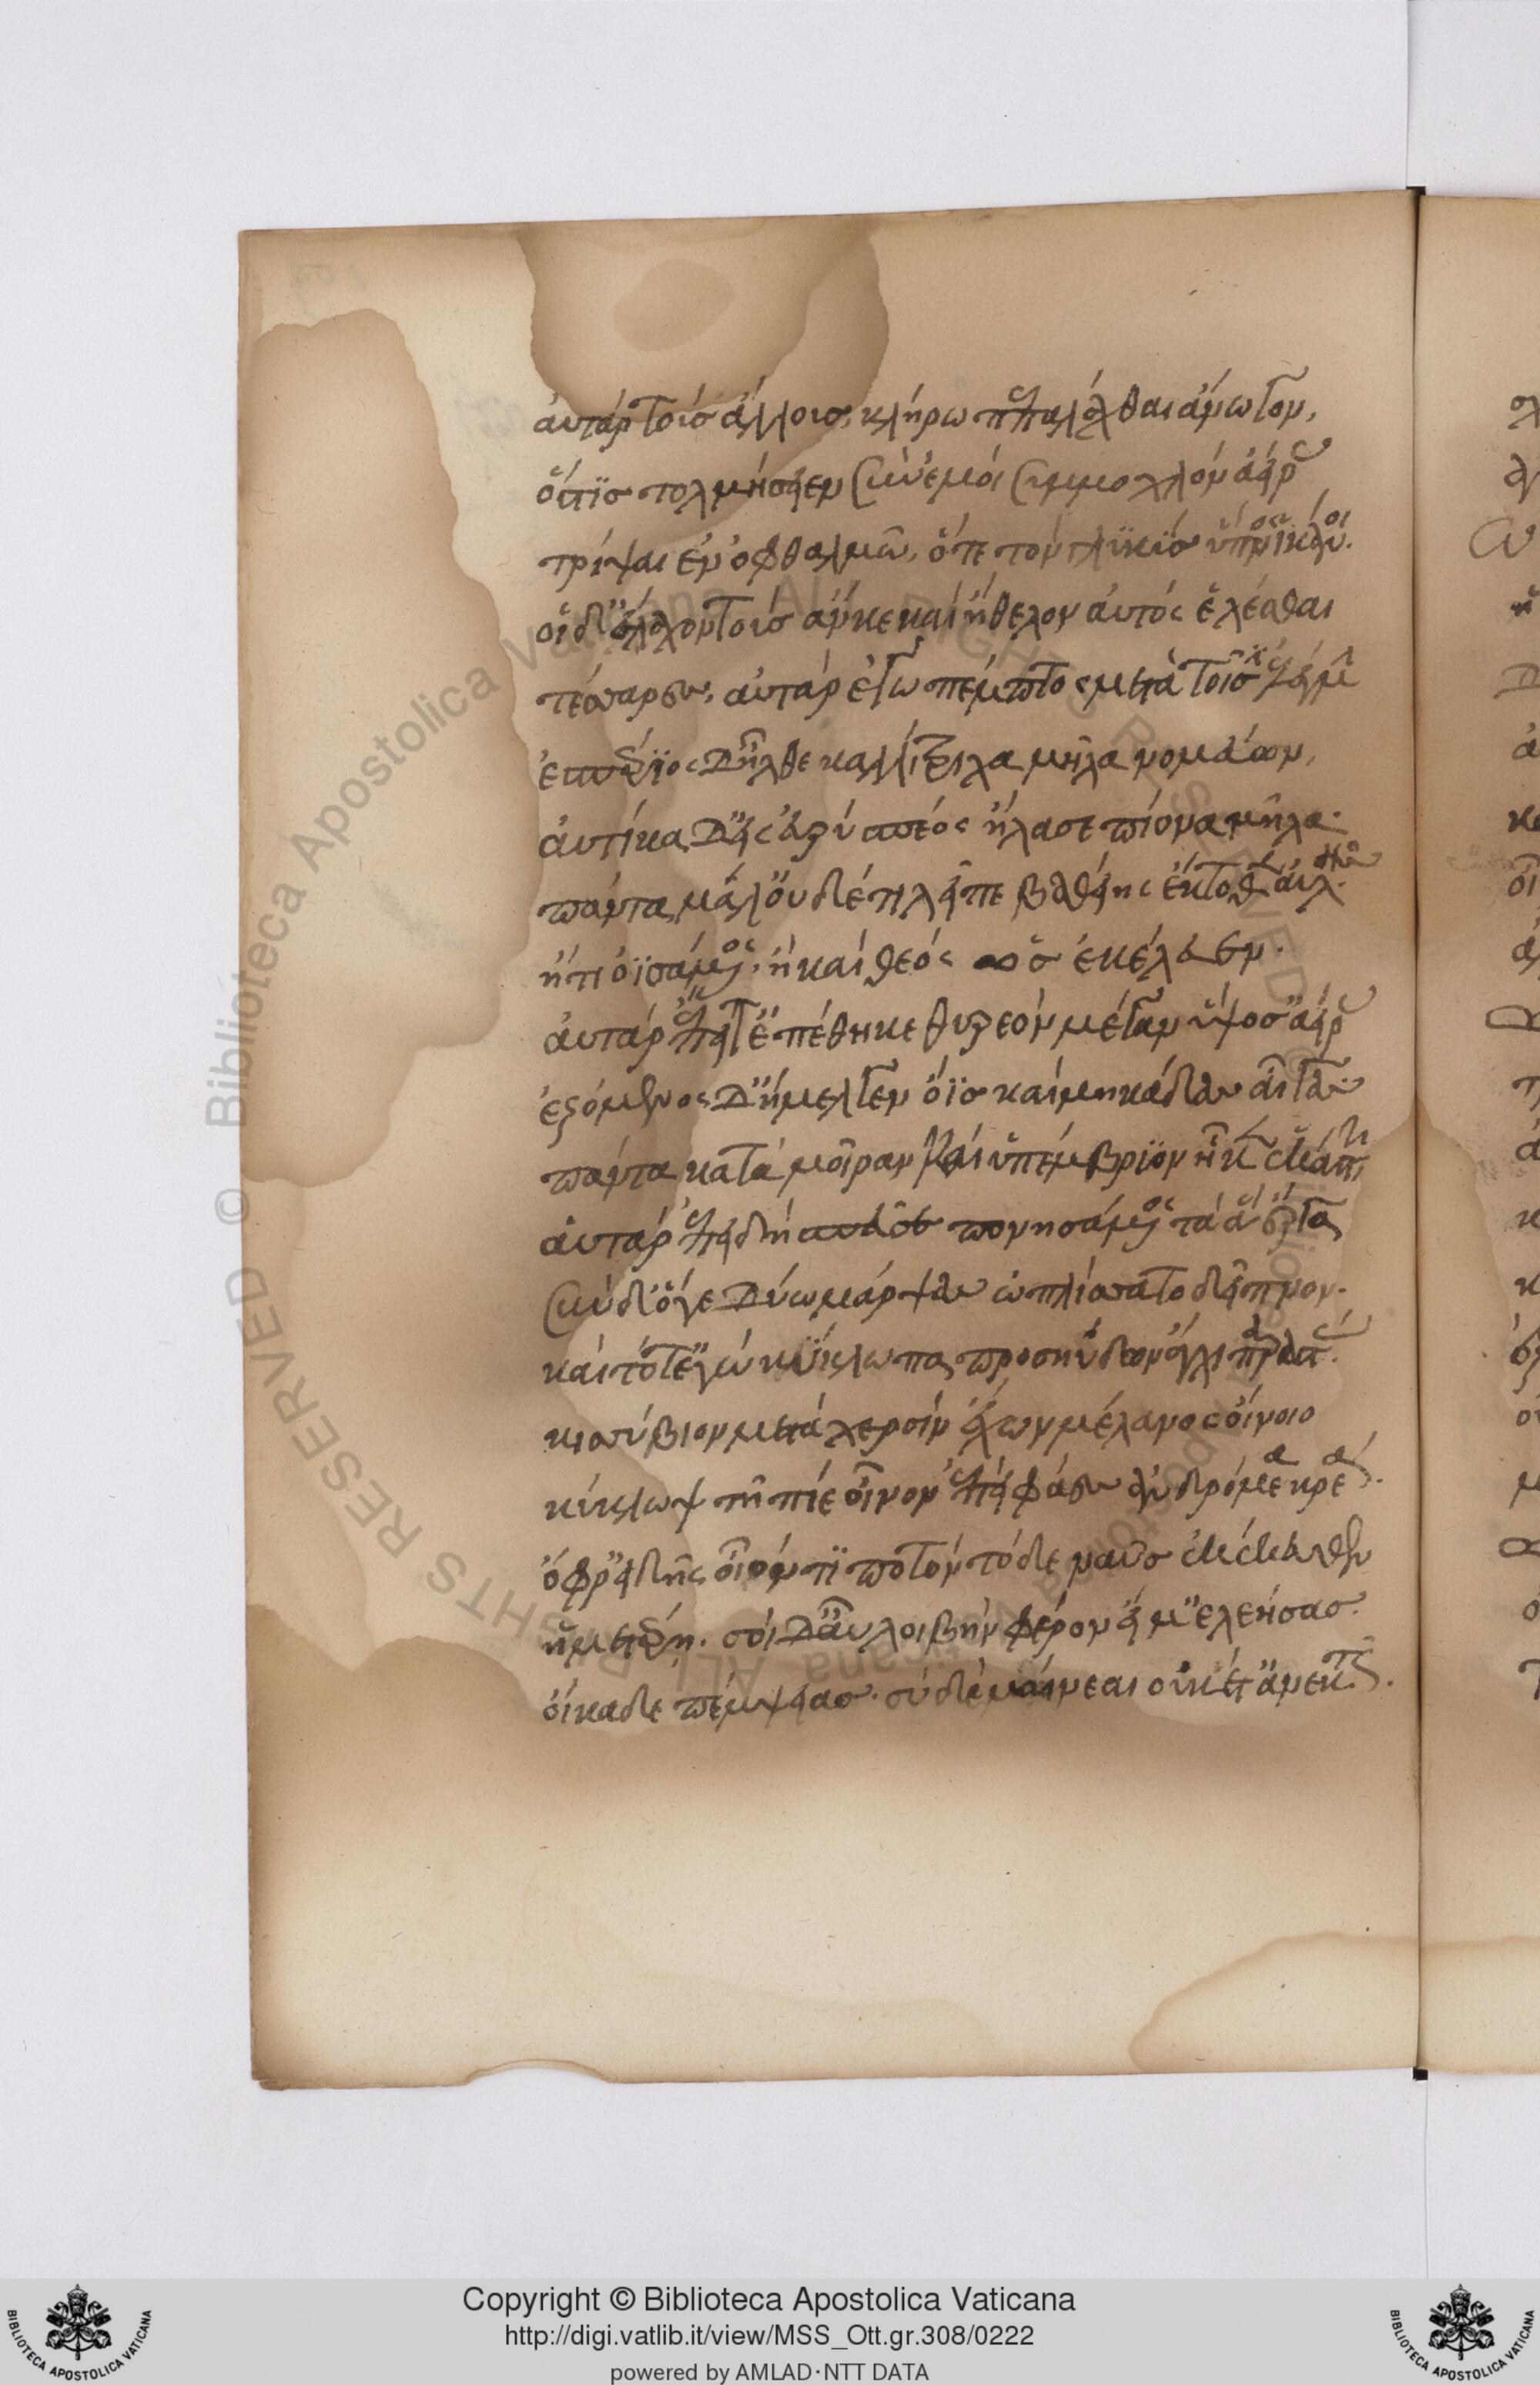 ἀυτάρ τοίσ ἄλλοισ, κλήρω πεπαλέχθαι ἄνωγον,
ὅστϊσ τολμήσειεν σὺν ἐμοὶ σὺν μοχλὸν ἀείρας
τρίψαι ἐν ὀφθαλμῶ, ὅτε τὸν γλϋκὺσ ὕπνος ἱκάνοι.
οἱ δ' ἔλαχον τοὺσ ἄν κε καὶ ἤθελον ἀυτὸς ἑλέσθαι
τέσσαρες, ἀυτάρ ἐγὼ πέμπτος μετὰ τοῖσιν ἐλέγμην
ἑσπέριος δ' ἦλθε καλλίτριχα μῆλα νομεύων,
ἀυτίκα δ' εἰς εὐρὺ σπέος ἤλασε πίονα μῆλα.
πάντα μάλ' οὐδέ τι λεῖπε βαθείης ἔκτοθεν ἀυλῆς
ἤ τι ὀϊσάμενος. ἢ καὶ θεὸς ὣσ ἐκέλευσεν.
ἀυτάρ ἔπειτ' ἐπέθηκε θυρεὸν μέγαν ὑψόσ' ἀείρας
ἑζόμενος δ' ἤμελγεν ὄϊσ καὶ μηκάδας αἶγας
πάντα κατὰ μοῖραν καὶ ὑπ' ἔμβρϋον ἧκεν ἑκάστη
ἀυτάρ ἐπειδὴ σπεῦσε πονησάμενος τὰ ἃ ἔργα
σὺν δ' ὅγε δύω μάρψας ὡπλίσσατο δεῖπνον.
καὶ τότ' ἐγὼ κύκλωπα προσηύδων ἄγχι παραστάς.
κισσύβιον μετὰ χερσὶν ἔχων μέλανος ὀίνοιο
κύκλωψ τῆ πίε οἶνον ἐπεὶ φάγες ἀνδρόμεα κρέα.
ὄφρ' εἰδῆς οἷόν τϊ ποτὸν τόδε ναῦσ ἐκεκεύθει
ἡμετέρη. σοὶ δ' αὖ λοιβὴν φέρον εἴ μ' ἐλεήσασ.
ὄικαδε πέμψειασ. σὺ δὲ μαίνεαι οὐκέτ' ἀνεκτῶς.
Copyright © Biblioteca Apostolica Vaticana
http://digi.vatlib.it/view/MSS_Ott.gr.308/0222
powered by AMLAD·NTT DATA